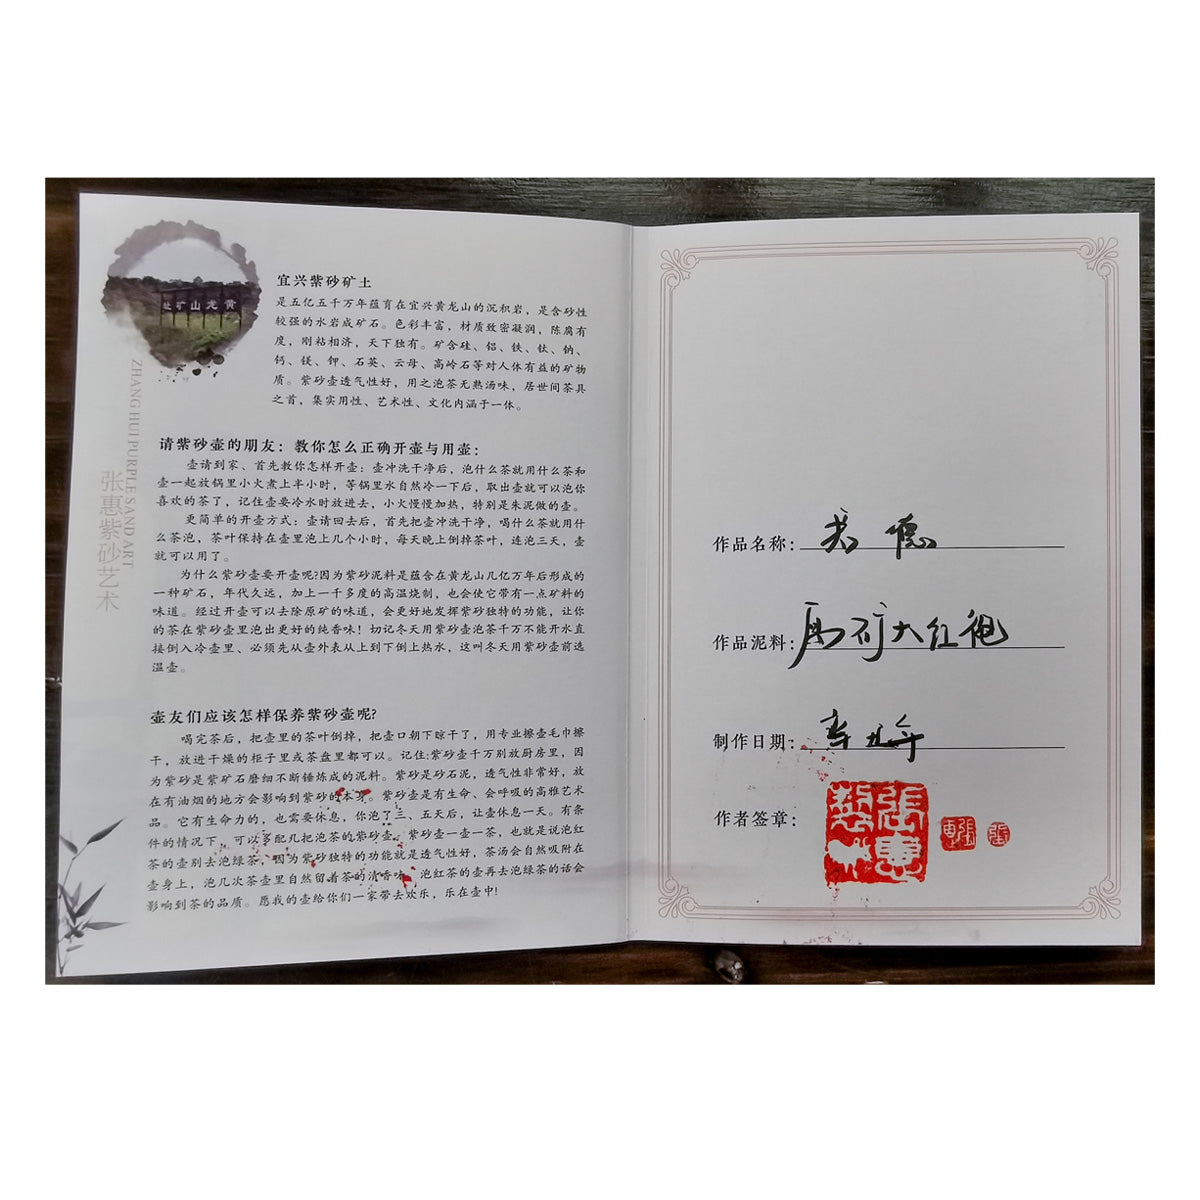 黄龙山矿址
宜兴紫砂矿土
是五亿五千万年蕴育在宜兴黄龙山的沉积岩，是含砂性
较强的水岩成矿石。色彩丰富，材质致密凝润，陈腐有
度，刚粘相济，天下独有。矿含硅、铝、铁、钛、钠、
钙、镁、钾、石英、云母、高岭石等对人体有益的矿物
质。紫砂壶透气性好，用之泡茶无熟汤味，居世间茶具
之首，集实用性、艺术性、文化内涵于一体。
ZHANG HUI PURPLE SAND ART
张惠紫砂艺术
请紫砂壶的朋友：教你怎么正确开壶与用壶：
壶请到家、首先教你怎样开壶：壶冲洗干净后，泡什么茶就用什么茶和
壶一起放锅里小火煮上半小时，等锅里水自然冷一下后，取出壶就可以泡你
喜欢的茶了，记住壶要冷水时放进去，小火慢慢加热，特别是朱泥做的壶。
更简单的开壶方式：壶请回去后，首先把壶冲洗干净，喝什么茶就用什
么茶泡，茶叶保持在壶里泡上几个小时，每天晚上倒掉茶叶，连泡三天，壶
就可以用了。
为什么紫砂壶要开壶呢?因为紫砂泥料是蕴含在黄龙山几亿万年后形成的
一种矿石，年代久远，加上一千多度的高温烧制，也会使它带有一点矿料的
味道。经过开壶可以去除原矿的味道，会更好地发挥紫砂独特的功能，让你
的茶在紫砂壶里泡出更好的纯香味！切记冬天用紫砂壶泡茶千万不能开水直
接倒入冷壶里、必须先从壶外表从上到下倒上热水，这叫冬天用紫砂壶前选
温壶。
壶友们应该怎样保养紫砂壶呢?
喝完茶后，把壶里的茶叶倒掉，把壶口朝下晾干了，用专业擦壶毛巾擦
干，放进干燥的柜子里或茶盘里都可以。记住:紫砂壶千万别放厨房里，因
为紫砂是紫矿石磨细不断锤炼成的泥料。紫砂是砂石泥，透气性非常好，放
在有油烟的地方会影响到紫砂的本身。紫砂壶是有生命、会呼吸的高雅艺术
品。它有生命力的，也需要休息，你泡了三、五天后，让壶休息一天。有条
件的情况下，可以多配几把泡茶的紫砂壶。紫砂壶一壶一茶，也就是说泡红
茶的壶别去泡绿茶，因为紫砂独特的功能就是透气性好，茶汤会自然吸附在
壶身上，泡几次茶壶里自然留着茶的清香味，泡红茶的壶再去泡绿茶的话会
影响到茶的品质。愿我的壶给你们一家带去欢乐，乐在壶中!
作品名称：君德
作品泥料：原矿大红袍
制作日期：
作者签章：
张惠